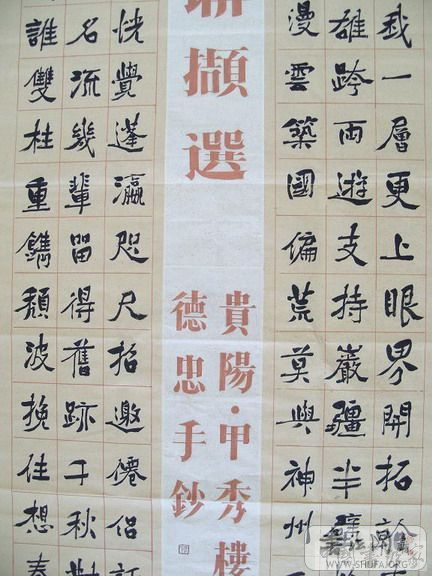 我一層更上眼界開拓
雄跨兩遊支持巖疆半壁
漫雲築國偏荒莫與神州
聯擷選
貴陽·甲秀樓
德忠手鈔
誰雙柱重鐫頹波挽住想
名流幾輩留得舊跡千秋
恍覺蓬瀛咫尺招邀僊侶
WWW.SHUFA.ORG